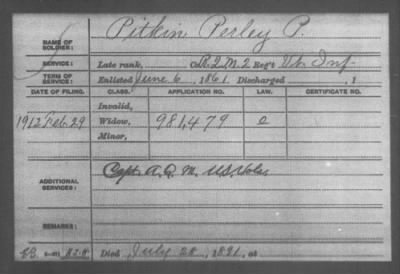 NAME OF SOLDIER: Pitkin Perley P.
SERVICE: Late rank, Co. R.Q.M. 2 Reg't Vt. Inf.
TERM OF SERVICE: Enlisted June 6, 1861. Discharged , 1
DATE OF FILING. CLASS. APPLICATION NO. LAW. CERTIFICATE NO.
Invalid,
1912 Feb. 29 Widow, 981,479 e
Minor,
ADDITIONAL SERVICES: Capt. A.Q.M. U.S. Vols
REMARKS:
Died July 28, 1891, at